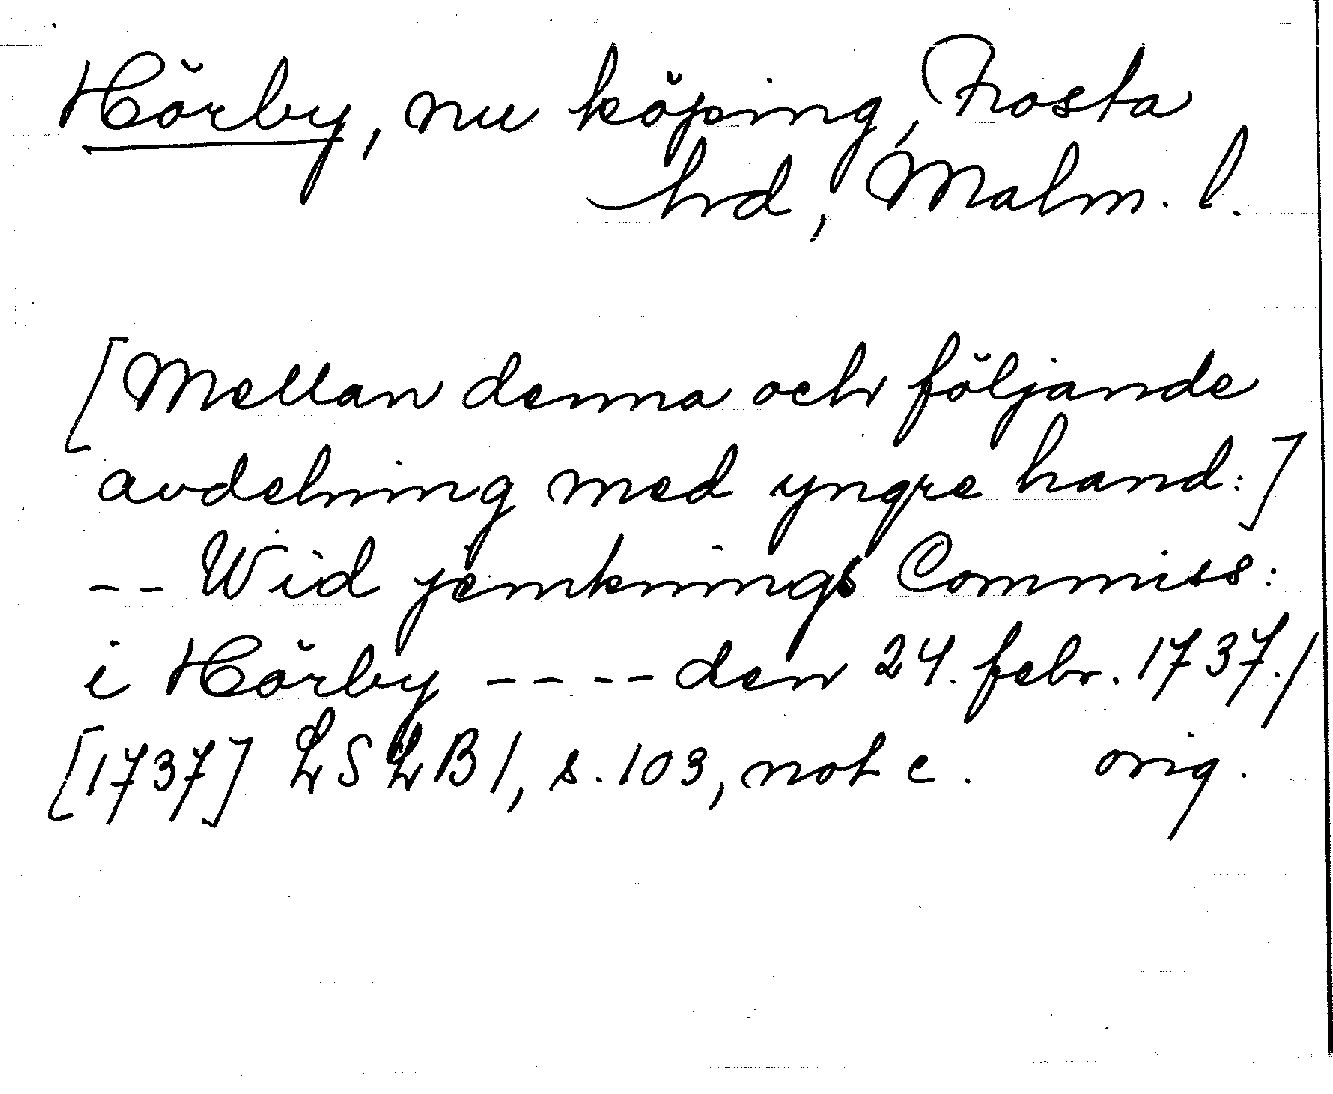 Hörby, nu köping, Frosta
hrd, Malm. l.
[Mellan denna och följande
avdelning med yngre hand:]
-- Wid jemknings Commiss:
i Hörby ---- den 24. febr. 1737./
[1737] LSLB 1, s. 103, not c. orig.